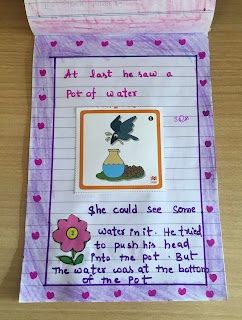 At last he saw a
Pot of water
She could see some
water in it. He tried
to push his head
into the pot. But
The water was at the bottom
of the Pot